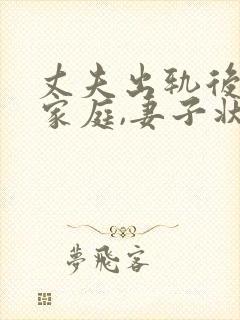 丈夫出轨後
家庭,妻子状
夢飛客